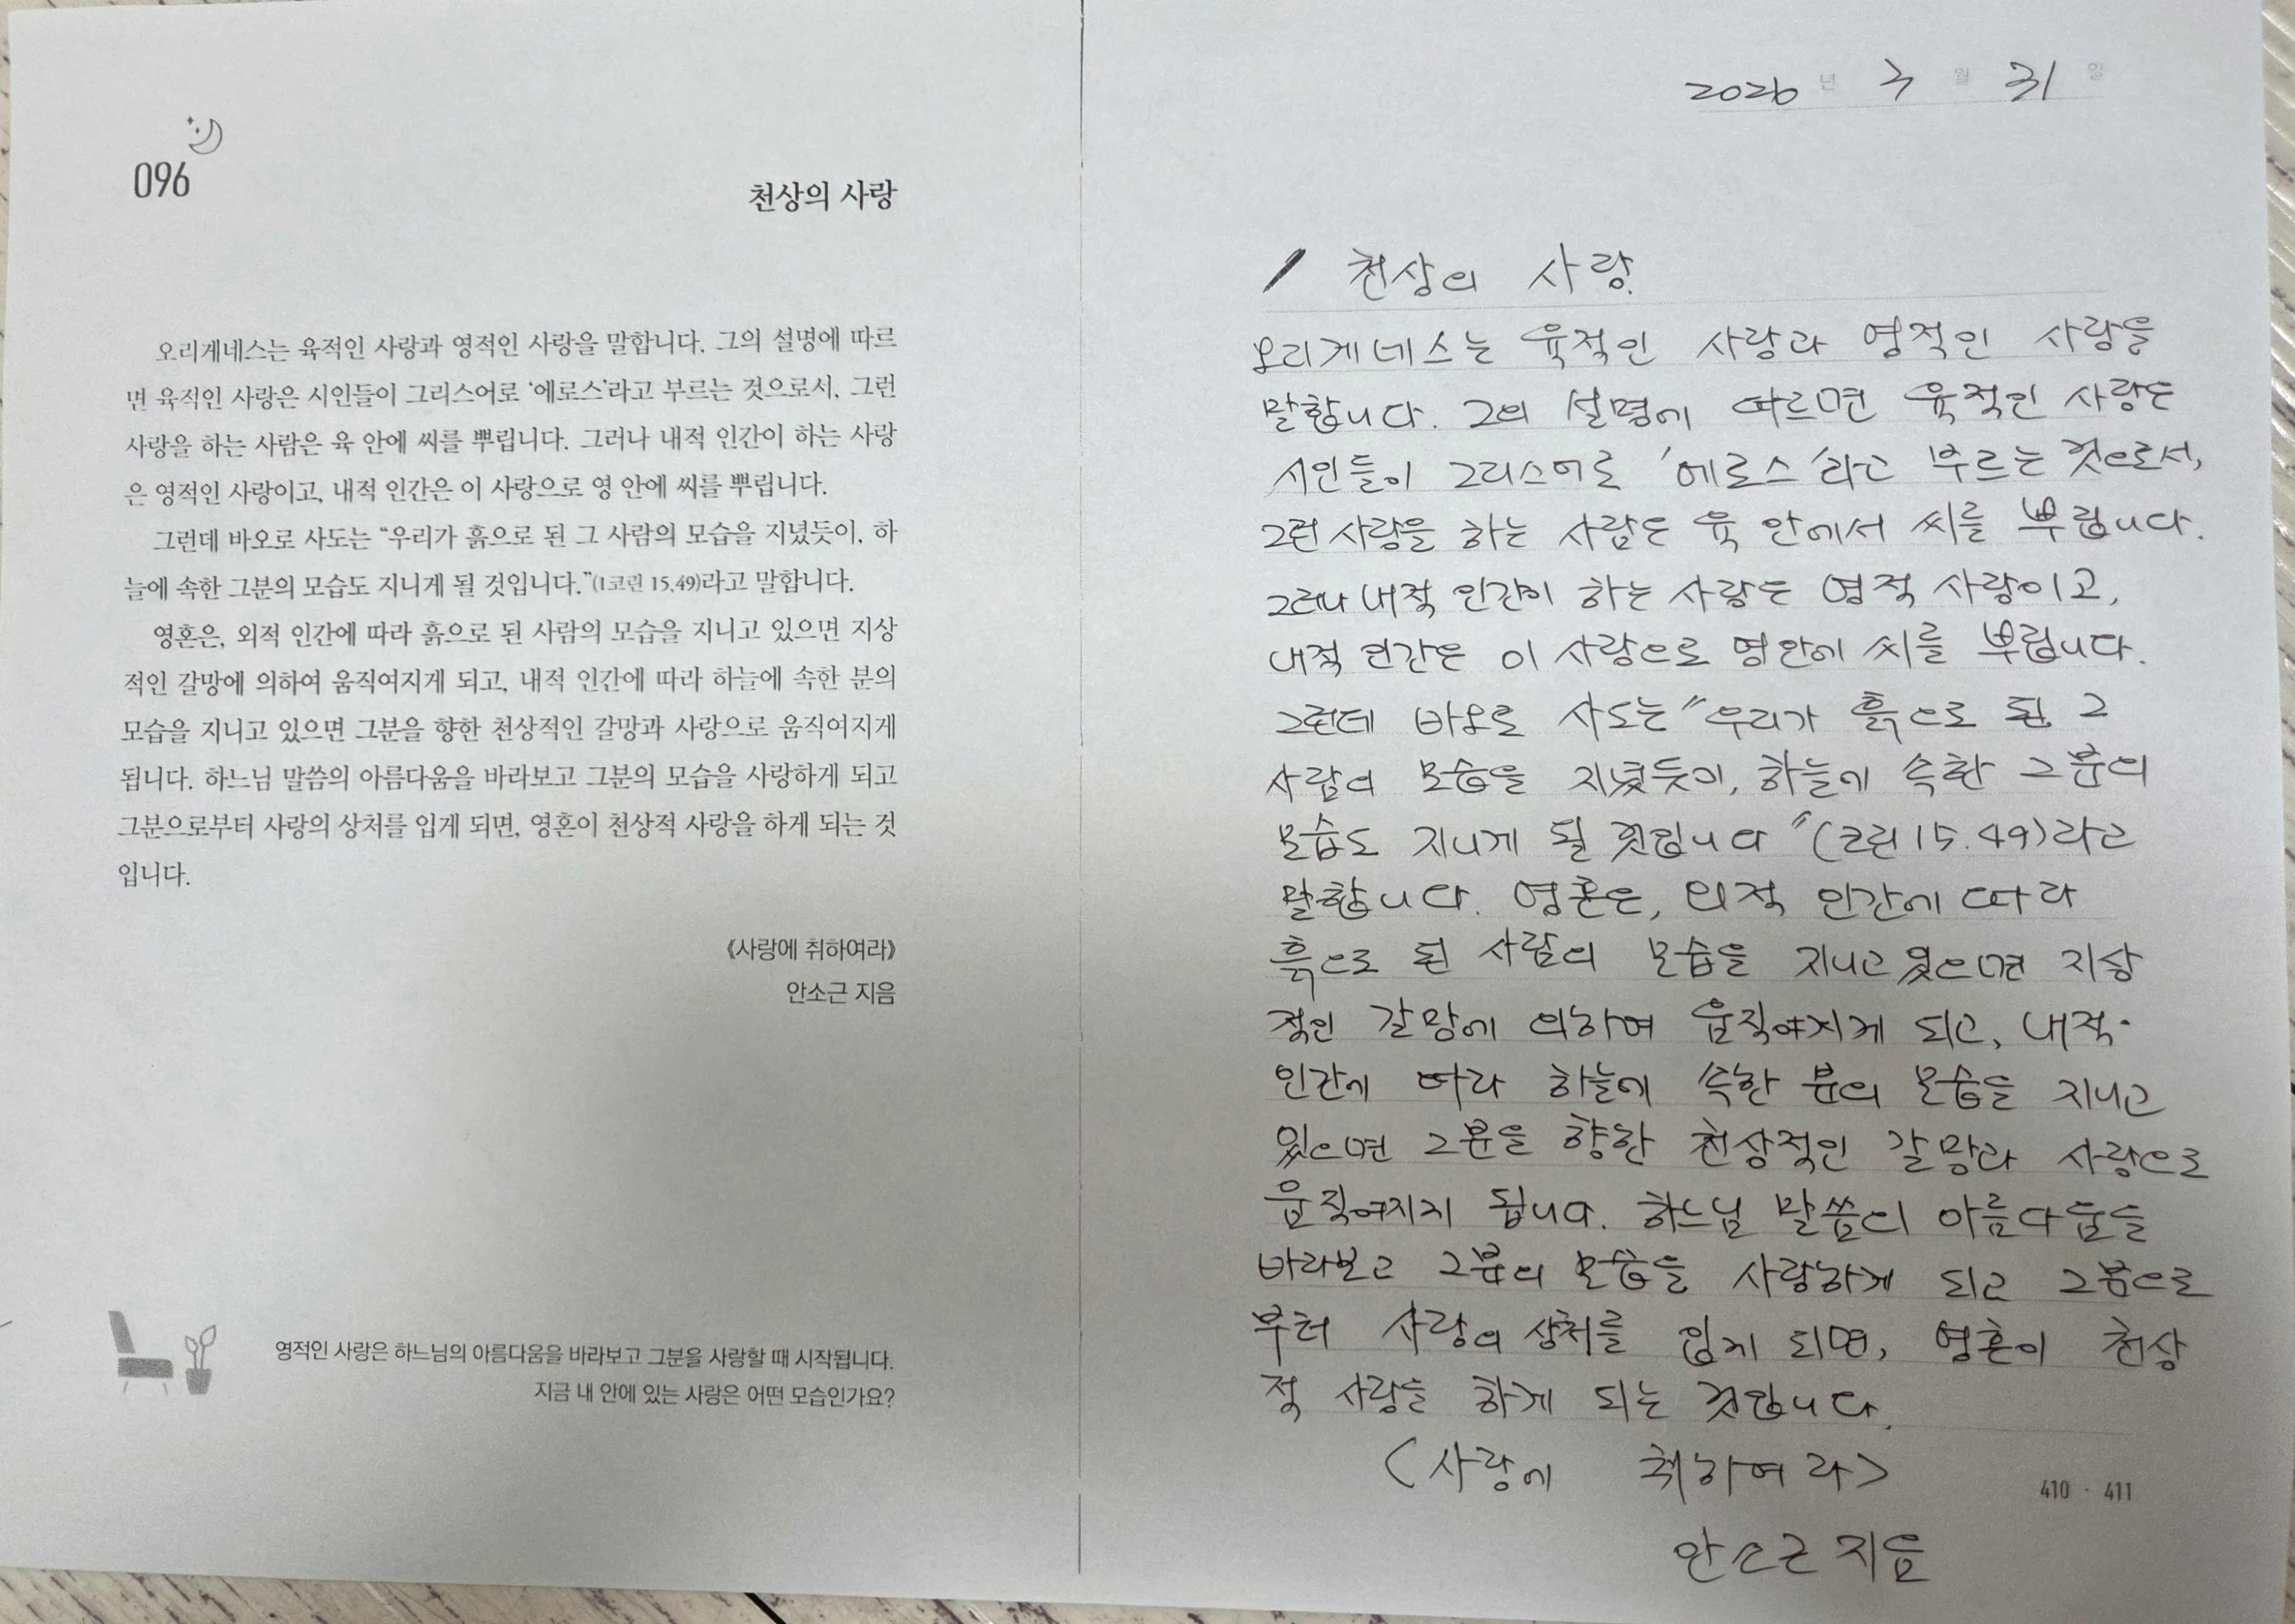 096
천상의 사랑
오리게네스는 육적인 사랑과 영적인 사랑을 말합니다. 그의 설명에 따르
면 육적인 사랑은 시인들이 그리스어로 ‘에로스’라고 부르는 것으로서, 그런
사랑을 하는 사람은 육 안에 씨를 뿌립니다. 그러나 내적 인간이 하는 사랑
은 영적인 사랑이고, 내적 인간은 이 사랑으로 영 안에 씨를 뿌립니다.
그런데 바오로 사도는 “우리가 흙으로 된 그 사람의 모습을 지녔듯이, 하
늘에 속한 그분의 모습도 지니게 될 것입니다.”(1코린 15,49)라고 말합니다.
영혼은, 외적 인간에 따라 흙으로 된 사람의 모습을 지니고 있으면 지상
적인 갈망에 의하여 움직여지게 되고, 내적 인간에 따라 하늘에 속한 분의
모습을 지니고 있으면 그분을 향한 천상적인 갈망과 사랑으로 움직여지게
됩니다. 하느님 말씀의 아름다움을 바라보고 그분의 모습을 사랑하게 되고
그분으로부터 사랑의 상처를 입게 되면, 영혼이 천상적 사랑을 하게 되는 것
입니다.
《사랑에 취하여라》
안소근 지음
영적인 사랑은 하느님의 아름다움을 바라보고 그분을 사랑할 때 시작됩니다.
지금 내 안에 있는 사랑은 어떤 모습인가요?
2026 년 3 월 31 일
천상의 사랑.
오리게네스는 육적인 사랑과 영적인 사랑을
말합니다. 그의 설명에 따르면 육적인 사랑은
시인들이 그리스어로 '에로스'라고 부르는 것으로서,
그런 사랑을 하는 사람은 육 안에서 씨를 뿌립니다.
그러나 내적 인간이 하는 사랑은 영적 사랑이고,
내적 인간은 이 사랑으로 영안에 씨를 뿌립니다.
그런데 바오로 사도는 "우리가 흙으로 된 그
사람의 모습을 지녔듯이, 하늘에 속한 그분의
모습도 지니게 될 것입니다"(코린 15.49)라고
말합니다. 영혼은, 외적 인간에 따라
흙으로 된 사람의 모습을 지니고 있으면 지상
적인 갈망에 의하여 움직여지게 되고, 내적
인간에 따라 하늘에 속한 분의 모습을 지니고
있으면 그분을 향한 천상적인 갈망과 사랑으로
움직여지게 됩니다. 하느님 말씀의 아름다움을
바라보고 그분의 모습을 사랑하게 되고 그분으로
부터 사랑의 상처를 입게 되면, 영혼이 천상
적 사랑을 하게 되는 것입니다.
<사랑에 취하여라>
410 · 411
안소근 지음